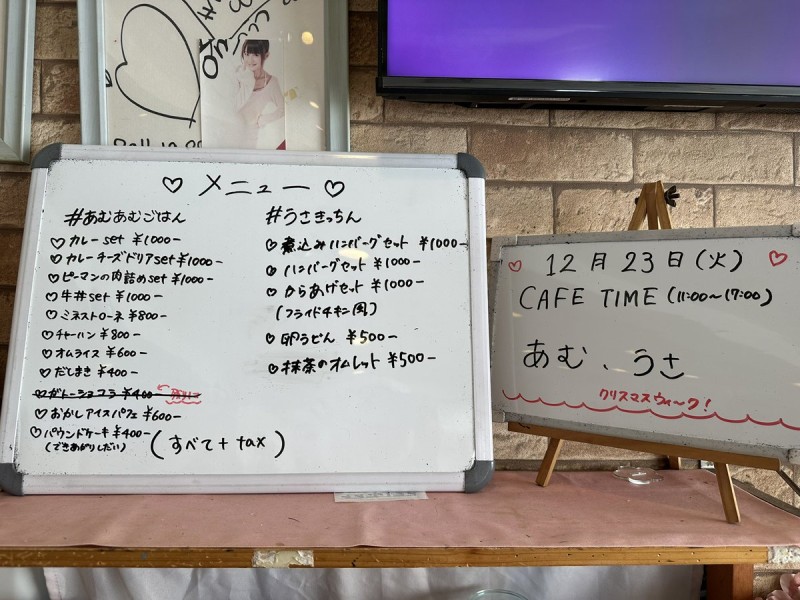 ♡ メニュー ♡
#あむあむごはん
♡ カレーset ¥1000-
♡ カレーチーズドリアset ¥1000-
♡ ピーマンの肉詰めset ¥1000-
♡ 牛丼set ¥1000-
♡ ミネストローネ ¥800-
♡ チャーハン ¥800-
♡ オムライス ¥600-
♡ だしまき ¥400-
♡ ガトーショコラ ¥400
♡ おかしアイスパフェ ¥600-
♡ パウンドケーキ ¥400-
(できあがりしだい)
(すべて+tax)
#うさきっちん
♡ 煮込みハンバーグセット ¥1000-
♡ ハンバーグセット ¥1000-
♡ からあげセット ¥1000-
(フライドチキン風)
♡ 卵うどん ¥500-
♡ 抹茶のオムレット ¥500-
♡ 12月23日(火) ♡
CAFE TIME (11:00~17:00)
あむ、うさ
クリスマスウィーク!